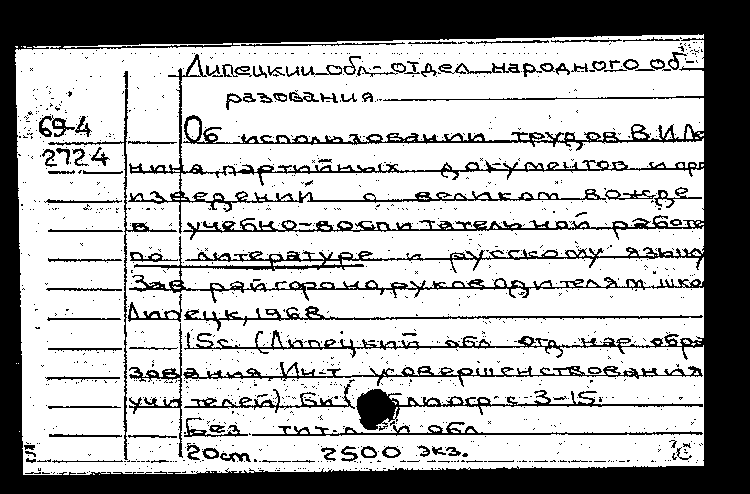 Липецкий обл. отдел народного об-
разования
69-4
2724
Об использовании трудов В.И.Ле
нина, партийных документов и пр
изведений о великом вожде
в учебно-воспитательной работе
по литературе и русскому языку
Зав. райгороно, руководителям шко
Липецк, 1968.
15с. (Липецкий обл. отд. нар. обра
зования. Ин-т усовершенствования
учителей) Би блиогр с 3-15.
Без тит.л и обл
20см. 2500 экз.